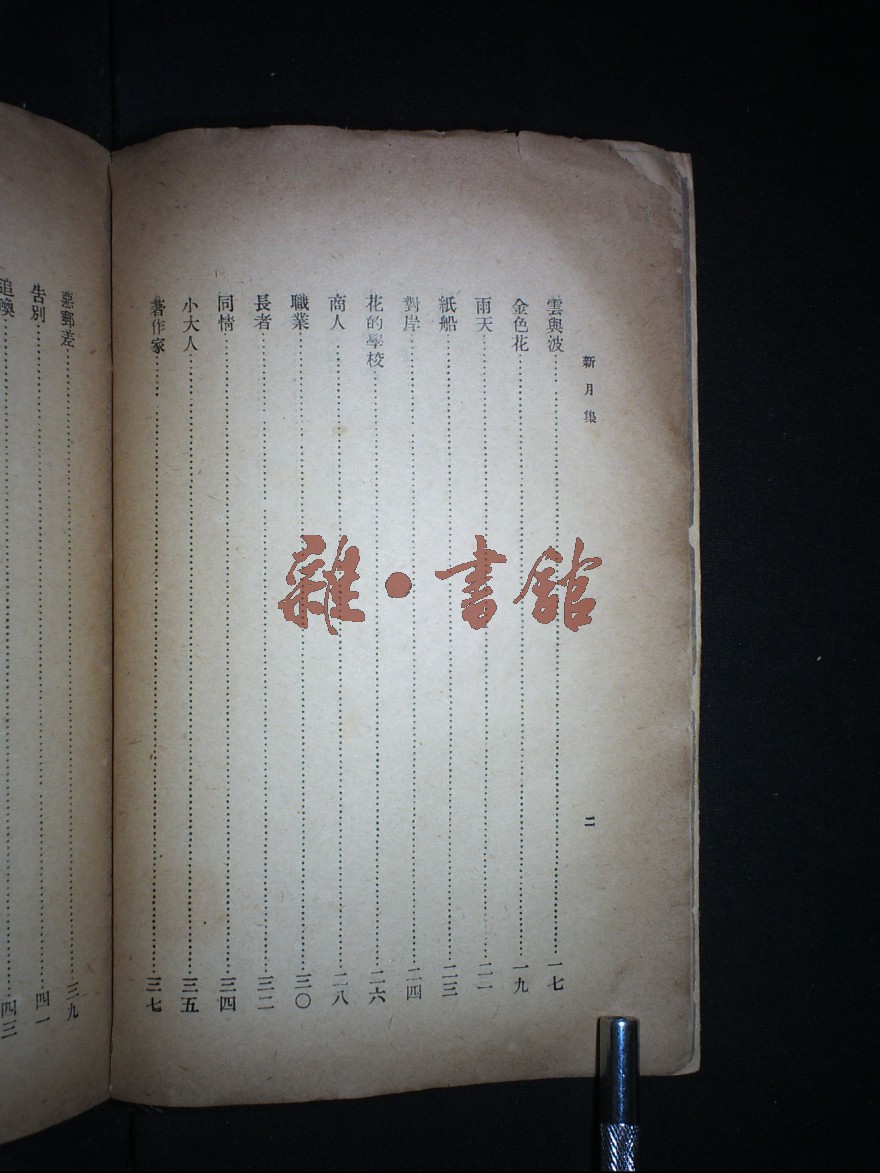 新月集
二
雲與波……一七
金色花……一九
雨天……二二
紙船……二三
對岸……二四
花的學校……二六
商人……二八
職業……三〇
長者……三二
同情……三四
小大人……三五
著作家……三七
惡郵差……三九
告別……四一
追喚……四三
雜·書館